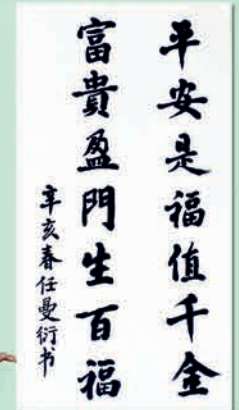 平安是福值千金
富貴盈門生百福
辛亥春任曼衍书